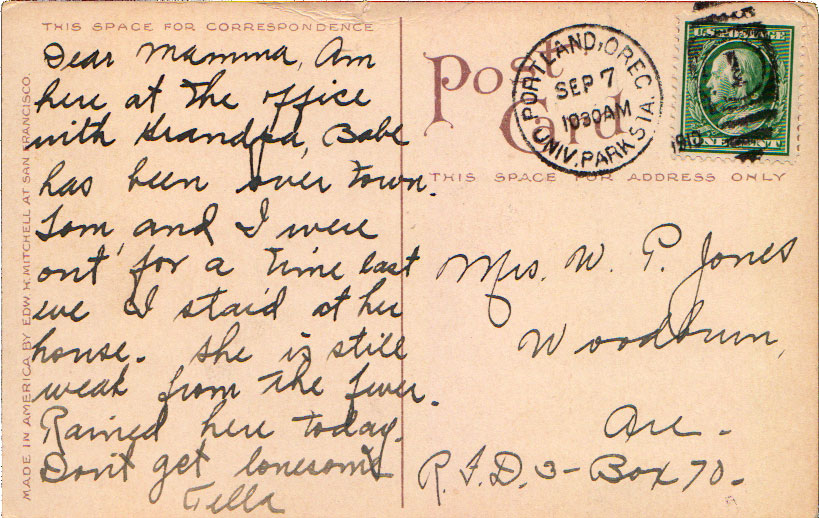 THIS SPACE FOR CORRESPONDENCE
Dear Mamma, Am
here at the office
with Grandpa, Babe
has been over town.
Tom, and I were
out for a time last
eve I staid at her
house. She is still
weak from the fever.
Rained here today.
Don't get lonesome
MADE IN AMERICA BY EDW. H. MITCHELL AT SAN FRANCISCO.
Post
Card
THIS SPACE FOR ADDRESS ONLY
PORTLAND, OREG.
SEP 7
1030AM
UNIV. PARK STA.
U.S. POSTAGE
Mrs. W. P. Jones
Woodburn,
Ore.
R.F.D. 3- Box 70.